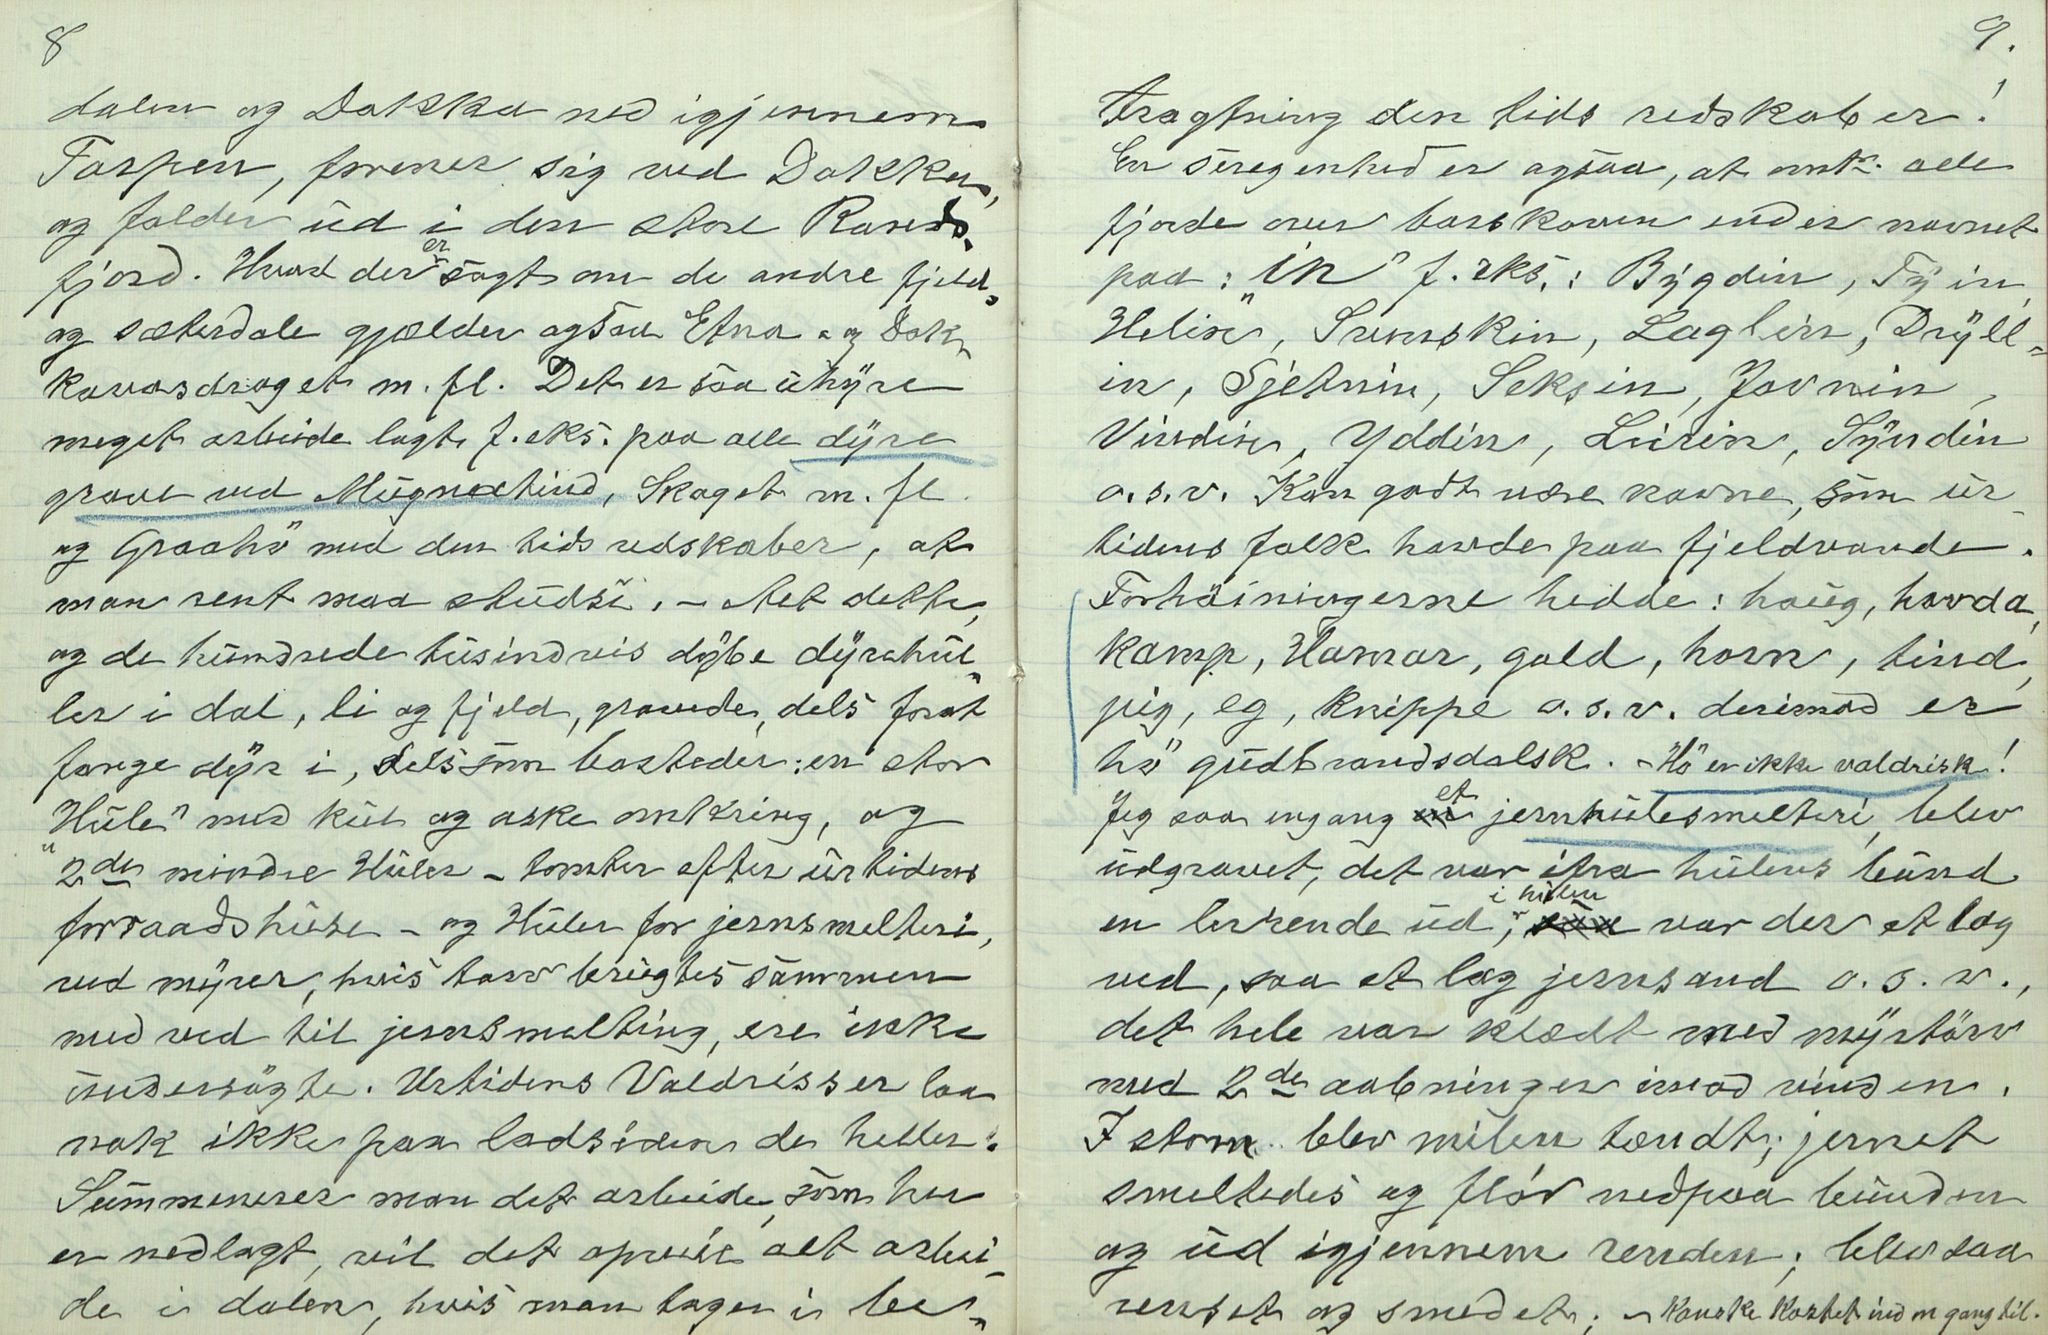 8
dalen og Dokka ned igjennem
Torpen, forener sig ved Dokka,
og falder ud i den store Rands-
fjord. Hvad der er sagt om de andre fjeld-
og sæterdale gjælder ogsaa Etna- og Dok-
kavasdraget m. fl. Det er saa uhyre
meget arbeide lagt f. eks. paa alle dyre
grave ved Mugnetind, Skaget m. fl.
og Graahö med den tids redskaber, at
man rent maa studse. – Alt dette,
og de hundrede tusindvis dybe dyrehul-
ler i dal, li og fjeld, gravede, dels forat
fange dyr i, dels som bosteder: en stor
"Hule" med kul og aske omkring, og
2de mindre Huler – tomter efter urtidens
forraadshuse – og Huler for jernsmelteri,
ved myrer, hvis torv brugtes sammen
med ved til jernsmelting, ere ikke
undersøgte. Urtidens Valdrisser laa
nok ikke paa ladsiden de heller.
Summenerer man det arbeide, som her
er nedlagt, vil det opveie alt arbei-
de i dalen, hvis man tager i be-
9.
tragtning den tids redskaber!
En særegenhed er ogsaa, at omtr. alle
fjorde over barskoven ender navnet
paa: "in" f. eks.: Bygdin, Tyin,
Helin, Svenskin, Laglin, Dryll-
in, Sjetnin, Seksin, Javnin,
Vindin, Yddin, Leirin, Syndin
o. s. v. Kan godt være navne, som ur-
tidens folk havde paa fjeldvande.
Forhöiningerne hedde: haug, hovda,
kamp, Hamar, gald, horn, tind,
pig, eg, knippe o. s. v. derimod er
hö gudbrandsdalsk. – Hö er ikke valdrisk!
Jeg saa engang et jernhulesmelteri, blev
udgravet, det var ifra hulens bund
en lerrende ud, i hulen var der et lag
ved, saa et lag jernsand o. s. v.,
det hele var klædt med myrtorv
med 2de aabninger imod vinden.
I storm blev milen tændt; jernet
smeltedes og fløv nedpaa bunden
og ud igjennem renden; blev saa
renset og smedet; – kanske kastet ind en gang til.